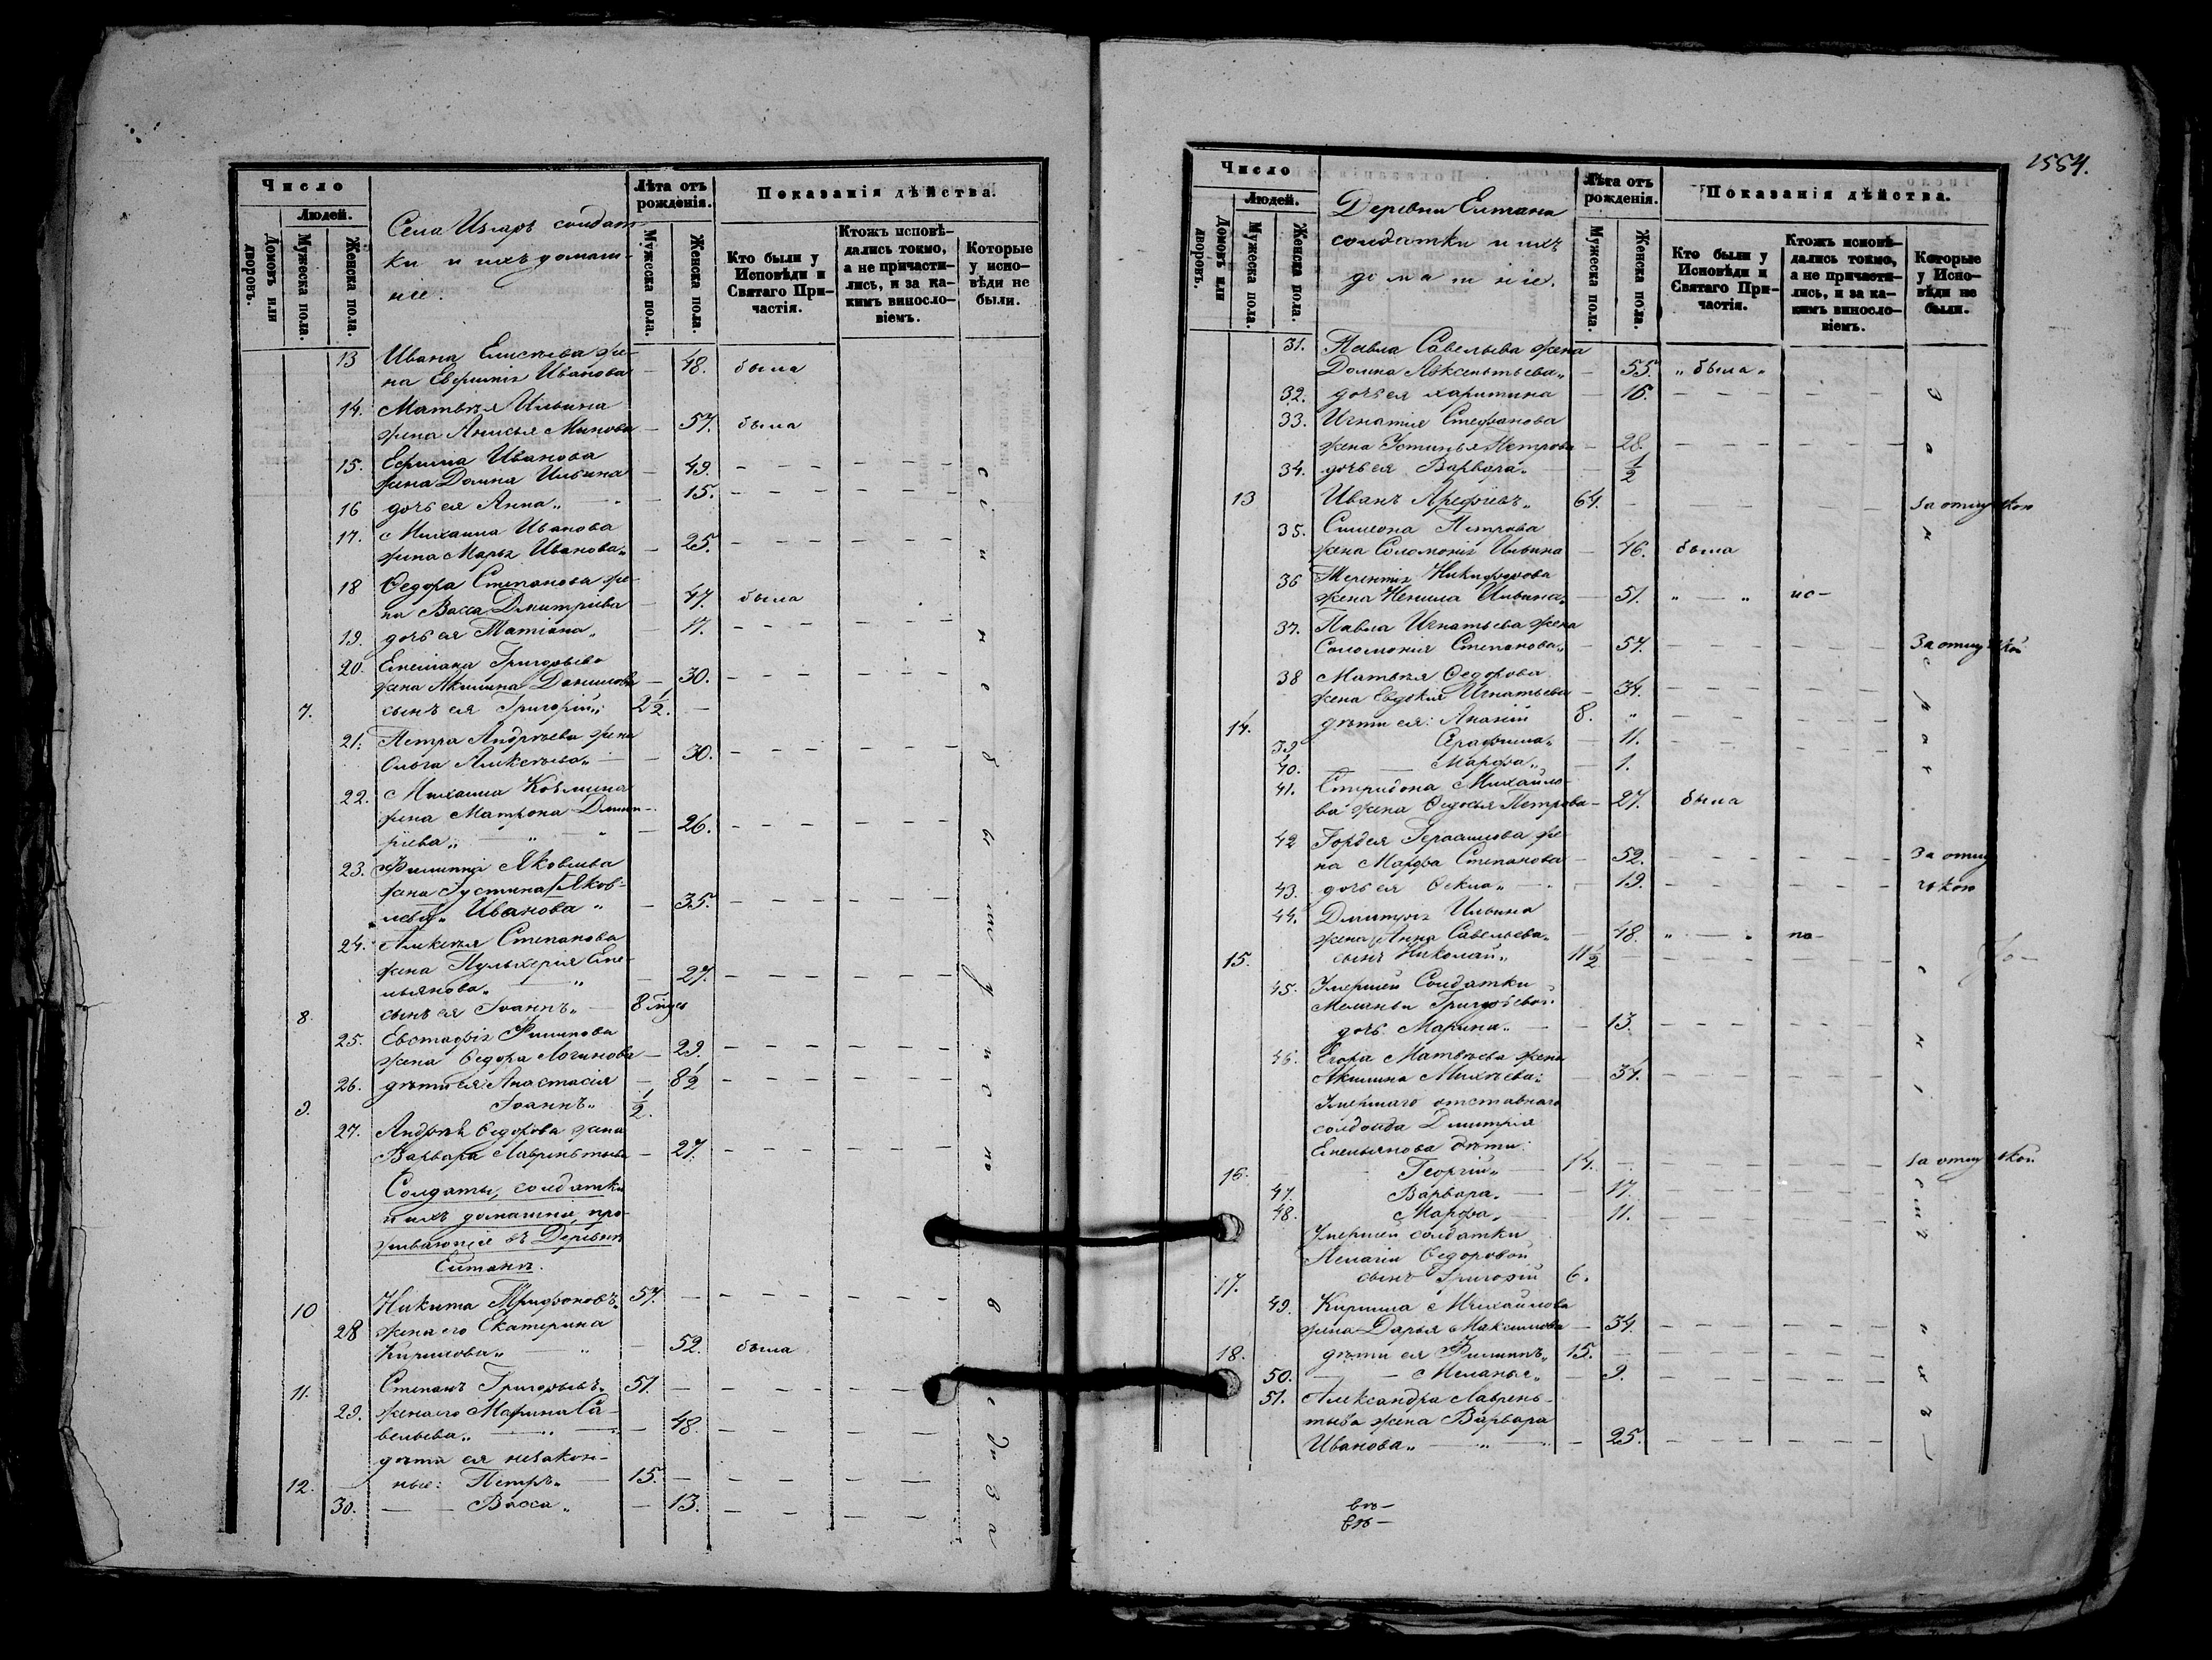 Число
Людей.
Домовъ или дворовъ.
Мужеска пола.
Женска пола.
Села солдат-
ки и ихъ домаш-
ніе.
Лѣта отъ рожденія.
Мужеска пола.
Женска пола.
Показанія дѣйства.
Кто были у Исповѣди и Святаго Причастія.
Ктожъ исповѣдались токмо, а не причастились, и за какимъ винословіемъ.
Которые у исповѣди не были.
13 Ивана Елисѣева же-
на Евфимія Иванова — 48. была
14. Матвѣя Ильина
жена Анисья — 57. была
15. Ефима Иванова
жена Домна Ильина — 49. — — — — — —
16 дочь ея Анна „ — 15. — — — — — —
17. Михаила Иванова
жена Марья Иванова „ — 25. — — — — — —
18 Ѳедора Степанова же-
на Васса Дмитріева — 47. была
19. дочь ея Татіана „ — 17. — — — — — —
20. Григорьева
жена Акилина Данилова — 30. — — — — — —
7. сынъ ея Григорій „ 2 1/2. —
21. Петра Андреева жена
Ольга Алексѣева „ — 30. — — — — — —
22. Михаила Козмина
жена Матрона Дмит-
ріева „ — 26. — — — — — —
23. Филиппа Яковлева
жена Іустина Яков-
Иванова „ — 35. — — — — — —
24. Алексѣя Степанова
жена Пульхерія Еме-
льянова „ — 27. — — — — — —
8. сынъ ея Іоаннъ „ 8
25. Евстафія Филипова
жена Ѳедора Логинова — 29. — — — — — —
26. дѣти ея: Анастасія — 8 1/2 — — — — — —
9. Іоаннъ „ 1/2.
27. Андрея Ѳедорова жена
Варвара Лаврентьева — 27. — — — — — —
Солдаты, солдатки
и ихъ домашніе, про-
живающіе въ Деревнѣ
Елтанъ.
10 Никита Трифоновъ „ 57. — — — — — —
28 жена его Екатерина
Кирилова „ — 52. была
11. Степанъ Григорьевъ „ 51. — — — — — —
29. жена его Марина Са-
вельева „ — 48. — — — — — —
дѣти ея незакон-
12. ные: Петръ „ 15. — — — — — —
30. — Васса „ — 13. — — — — — —
1554.
Число
Людей.
Домовъ или дворовъ.
Мужеска пола.
Женска пола.
Деревни Елтана
солдатки и ихъ
домашніе.
Лѣта отъ рожденія.
Мужеска пола.
Женска пола.
Показанія дѣйства.
Кто были у Исповѣди и Святаго Причастія.
Ктожъ исповѣдались токмо, а не причастились, и за какимъ винословіемъ.
Которые у Исповѣди не были.
31. Павла Савельева жена
Домна „ — 55. „ была „
32. дочь ея Харитина — 16. — — — — — —
33. Игнатія Стефанова
жена Устинья Петрова — 28. — — — — — —
34. дочь ея Варвара „ — 1/2
13 Иванъ Арефіевъ „ 64. — — — — За отлучкою
35. Симеона Петрова
жена Соломонія Ильина — 46. была
36 Терентія Никифорова
жена Ненила Ильина „ — 51. „ — „ ис-
37. Павла Игнатьева жена
Соломонія Степанова „ — 57. — — — — — За отлучкой
38 Матвѣя Ѳедорова
жена Евдокія Игнатьева — 34. — — — — — —
14. дѣти ея: Ананій 8. „ — — — — — —
39 Серафима „ — 11. — — — — — —
40. — Марфа „ — 1. — — — — — —
41. Спиридона Михайло-
ва жена Ѳедосья Петрова — 27. была
42 Гордея Герасимова же-
на Марфа Степанова — 52. — — — — — За отлу
43. дочь ея Ѳекла „ — 19. — — — — — чкою
44. Дмитрія Ильина
жена Анна Савельева „ — 48. „ — „ по-
15. сынъ Николай „ 11 1/2 — — — — — —
45. Умершей Солдатки
Меланьи Григорьевой
дочь Марина „ — 13. — — — — — —
46. Егора Матвѣева жена
Акилина Михѣева „ — 31. — — — — — —
Умершаго отставнаго
солдада Дмитрія
Емельянова дѣти:
16. Георгій „ — 14. — — — — — За отлучкой
47. Варвара „ — 17. — — — — — —
48. Марфа „ — 11. — — — — — —
Умершей солдатки
Пелагіи Ѳедоровой
17. сынъ Григорій 6.
49. Кирилла Михайлова
жена Дарья Максимова — 34. — — — — — —
18. дѣти ея Филиппъ „ 15. — — — — — —
50. — Меланья „ — 9. — — — — — —
51. Александра Лаврень-
тьева жена Варвара
Иванова „ — 25. — — — — — —